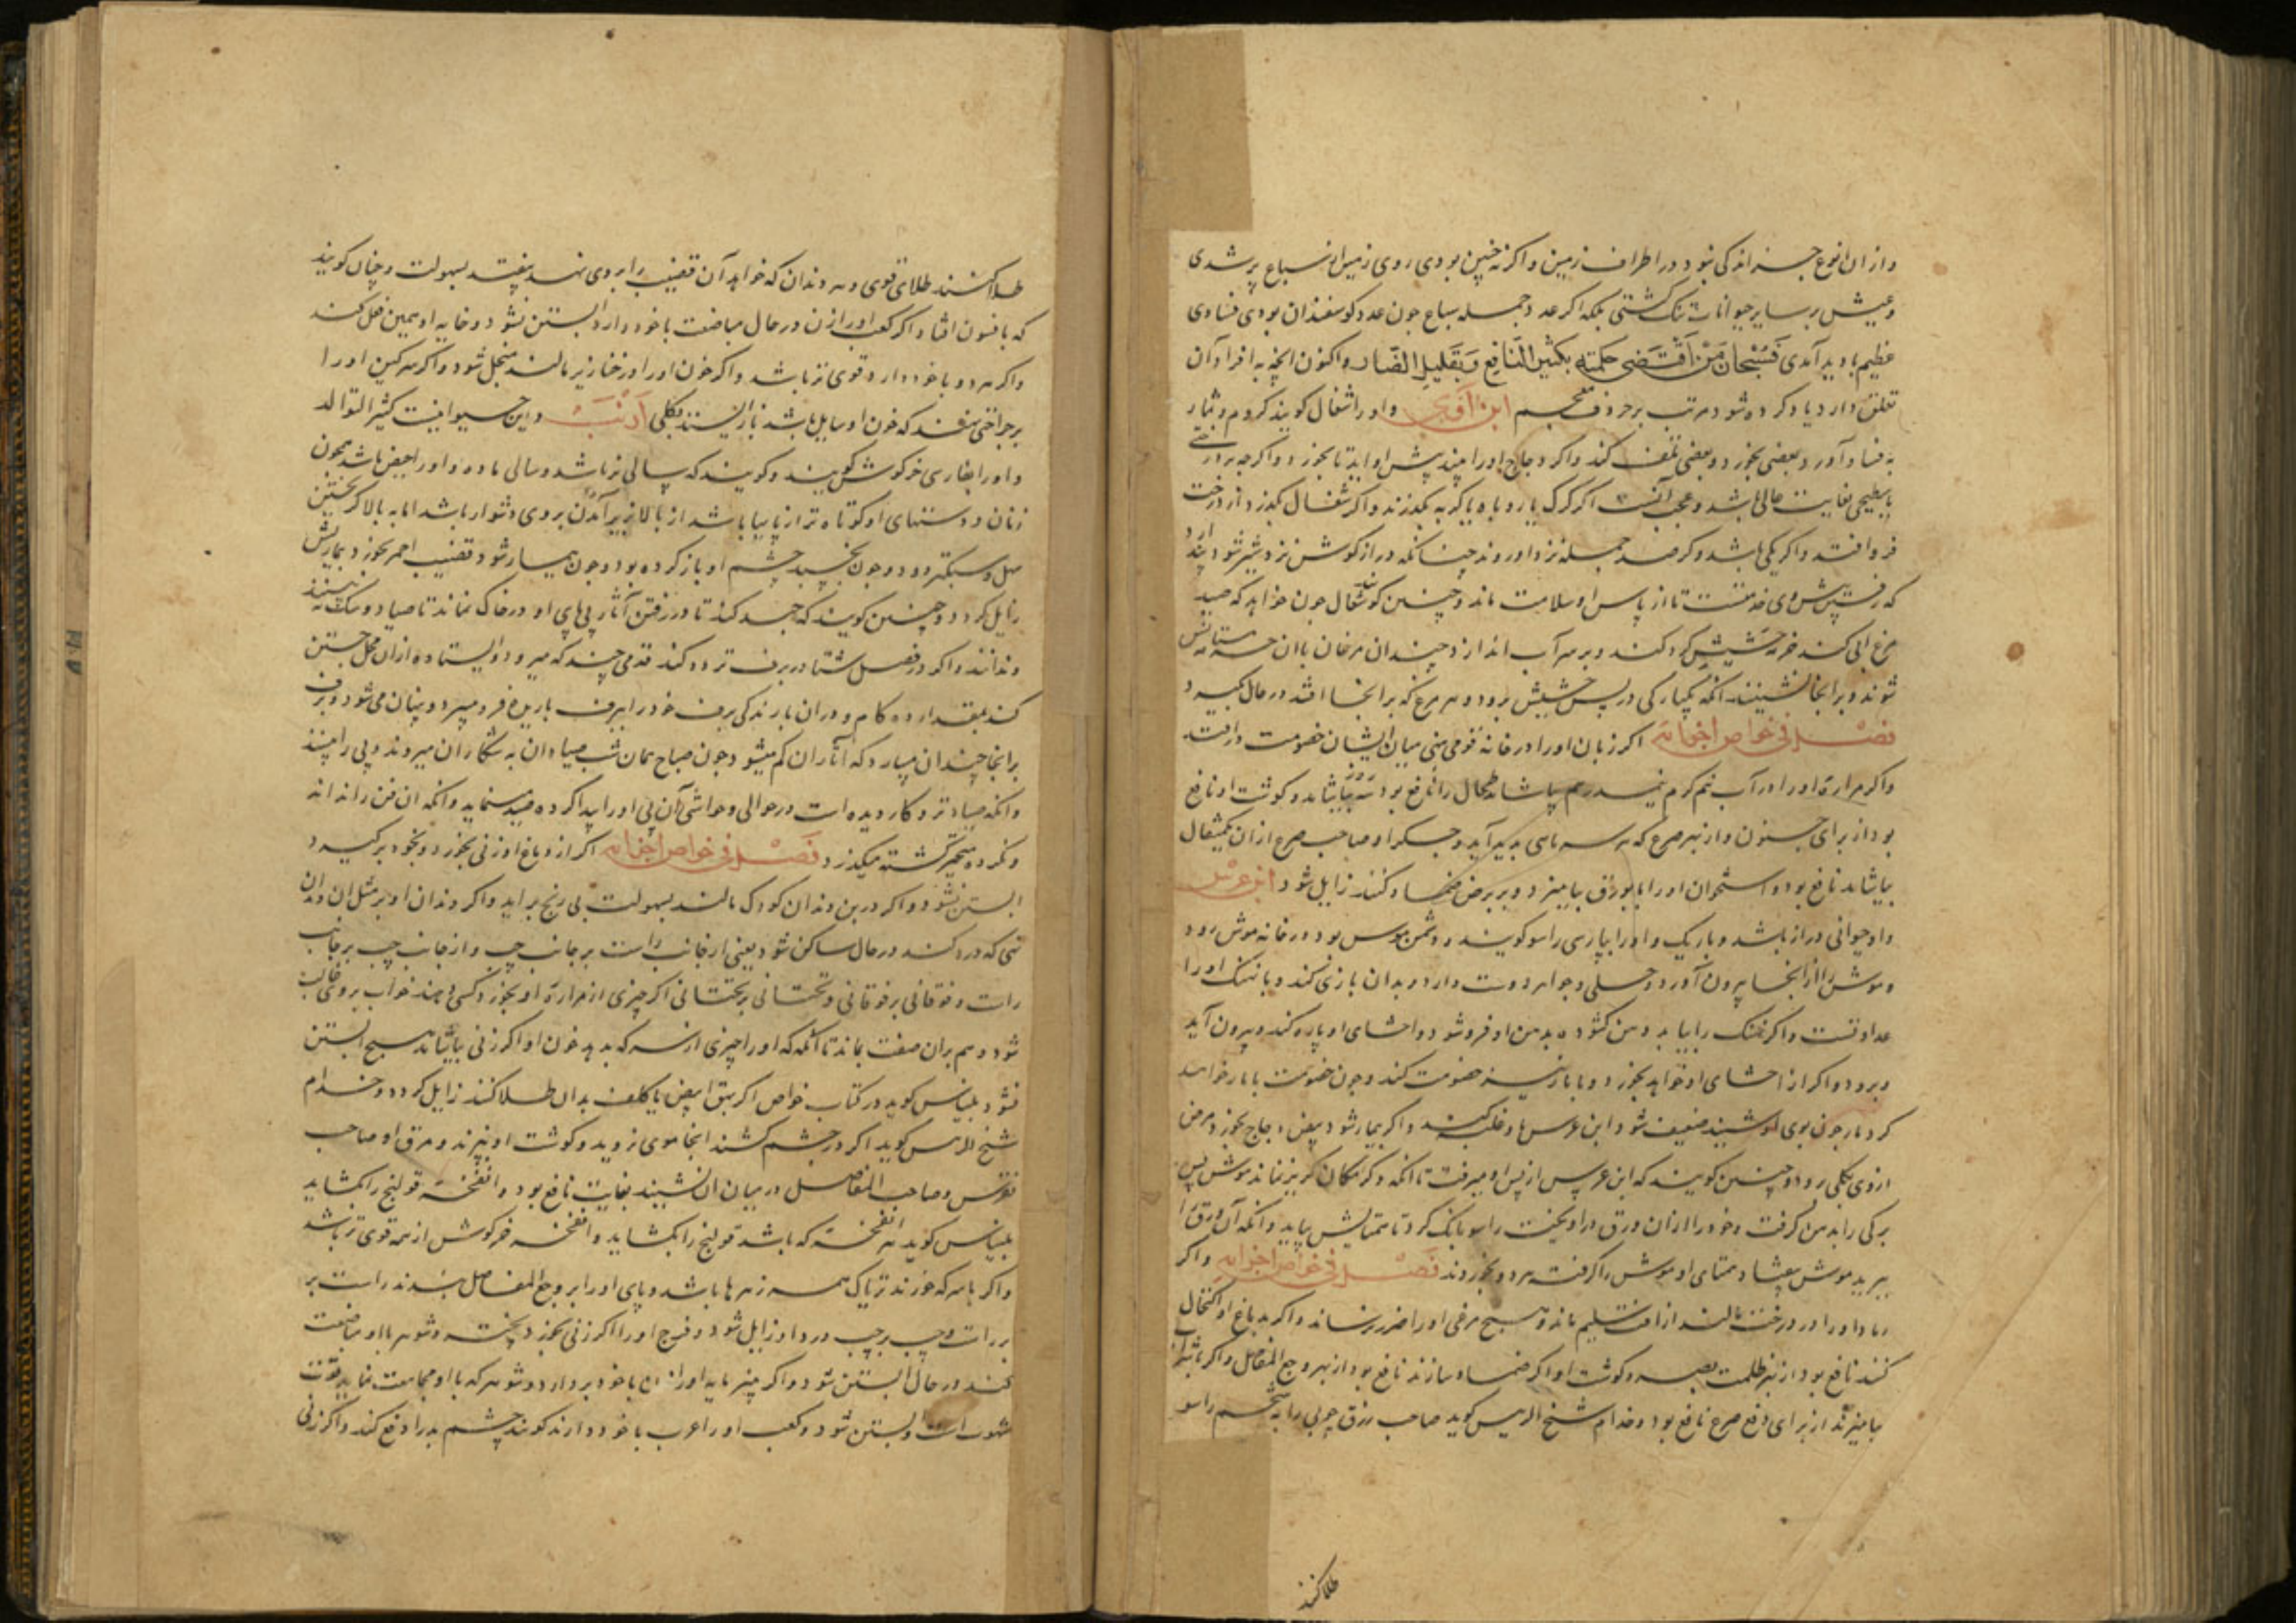 و از ان انوع جز اندکی نبود در اطراف زمین و اگر نه چنین بودی روی زمین از سباع پر شدی
و عیش بر سایر حیوانات تنک گشتی بلکه اگر عدد جمله سباع چون عدد کوسفندان بودی فسادی
عظیم پا دید آمدی فَسُبْحانَ مَنْ اَقْتَضی حکمته بکثیر النافع وَ بقلیل الضار و اکنون انچه به افراد آن
تعلق دارد یاد کرده شود مرتب بر حروف معجم ابن آوی و او را شغال کویند کروم و ثمار
به فساد آورد بعضی بخورد و بعضی تلف کند و اکر دجاج او را بیند پیش او اید تا بخورد و اکر چه بر درختی
یا سطحی بغایت عالی باشد و عجب آنست اکر کرک یا روباه یا کربه بگذرند و اکر شغال بگذرد از درخت
فرو افتد و اکر یکی باشد و کر صد جمله نزد او روند چنانکه دراز کوش نزد شیر شود پندارد
که رفتن پیش وی خدمتست تا از باس او سلامت ماند و چنین کویند شغال چون خواهد که صید
مرغ ابی کند خرمه حشیش کرد کند و بر سر آب اندازد چندان مرغان با ان مستانس
شوند و بر انجا نشینند انکه یکبارکی در پس حشیش برود و هر مرغ که بر انجا افتد در حال بگیرد
فصل فی خواص اجزائه اکر زبان او را در خانه قومی نهی میان ایشان خصومت در افتد
و اکر مراره او را در آب نیم گرم نیمدرم بیاشامد طحال را نافع بود سه روز بیاشامد و کوشت او نافع
بود از برای جنون و از بهر صرع که سر ماسی پدید آید و جسکر او صاحب صرع از ان یکمثقال
بیاشامد نافع بود و استخوان او را با بورق بیامیزد و بر برص ضماد کنند زایل شود ابن عرس
و او حیوانی دراز باشد و باریک و او را بپارسی راسو کویند و دشمن موس بود در خانه موش رود
و موش را از انجا بیرون آورد و حلی و جواهر دوست دارد و بدان بازی کند و با نهنک او را
عداوتست و اکر نهنک را بیابد دهن کشوده بدهن او فرو شود و احشای او پاره کند و بیرون آید
و برود و اکر از احشای او خواهد بخورد و با مار نیز خصومت کند و چون خصومت با مار خواهد
کرد مار چون بوی شنید ضعیف شود ابن عرس بر او غلبه کند و اکر بیمار شود بیض دجاج بخورد مرض
از وی بکلی رود و چنین کویند که ابن عرس از پس او میرفت تا انکه دکر مکان کریز نماند موش پس
برکی را بدهن گرفت و خود را از ان ورق در اویخت راسو بانک کرد تا همتایش بیاید و انکه آن ورق را
ببرید موش بیفتاد و همتای او موش را گرفت هر دو بخوردند فصل فی خواص اجزائه و اکر
رماد او را در درخت مالند از افت سلیم ماند و هیچ مرغی او را ضرر نرساند و اکر بدماغ او اکتحال
کنند نافع بود از بهر ظلمت بصر و کوشت او اکر ضماد سازند نافع بود از بهر وجع المفاصل و اکر با شراب
بیامیزند از برای دفع صرع نافع بود و خدام شیخ الرییس کوید صاحب رزق چو پی را به شحم راسو
طلا کنند
طلا کنند طلای قوی و هر دندان که خواهد آن قضیب را بر وی نهد بیفتد بسهولت و چنان کویند
که بافسون افتاد اکر کعب او را زن در حال مباضعت با خود دارد آبستن نشود و خایه او همین فعل کند
و اکر مرد و با خود دارد قوی تر باشد و اکر خون او را در خنازیر مالند منحل شود و اکر سرکین او را
بر جراحتی نهند که خون او سایل باشد باز ایستد بکلی اَرْنَبْ و این حیوانیست کثیر التوالد
و او را بفارسی خرکوش کویند و کویند که سالی نر باشد و سالی ماده و او را حیض باشد همچون
زنان و دستهای او کوتاه تر از پایها باشد از بالا بزیر آمدن بر وی دشوار باشد اما به بالا کریختن
سهل و سبکتر رود و چون بخسپد چشم او باز کرده بود و چون بیمار شود قضیب احمر بخورد بیماریش
زایل کردد و چنین کویند که جهد کند تا در رفتن آثار پی های او در خاک نماند تا صیاد و سک نه بینند
و ندانند و اکر در فصل شتا در برف تردد کند قدمی چند که میرود ایستاده از ان محل جستن
کند بمقدار ده کام و در ان بارندکی برف خود را برف باریده فرو میبرد و پنهان می شود و برف
بر انجا چندان میبارد که آثار ان کم میشود چون صباح همان شب صیادان به شکار ان میروند و پی را بینند
و انکه صیادتر و کار دیده است در حوالی و حواشی آن پی او را پیدا کرده صید مینماید و انکه ان فن را نداند
و نکرده متحیر گشته میگذرد فصل فی خواص اجزائه اکر از دماغ او زنی بخورد و بخود بر گیرد
آبستن نشود و اکر در بن دندان کودک مالند بسهولت بی رنج بر اید و اکر دندان او بر مثل ان دندان
نهی که درد کند در حال ساکن شود یعنی از جانب راست بر جانب چپ و از جانب چپ بر جانب
راست و فوقانی بر فوقانی و تحتانی بر تحتانی اکر چیزی از مراره او بخورد کسی دهند خواب بر وی غالب
شود و هم بران صفت بماند تا انکه که او را چیزی از سرکه بدهد خون او اکر زنی بیاشامد هیچ آبستن
نشود بلیناس کوید در کتاب خواص اکر بهق ابیض یا کلف بدان طلا کنند زایل کردد و خدام
شیخ الرییس کوید اکر در چشم کشند انجا موی نروید و کوشت او بپزند و مرق او صاحب
نقرس و صاحب المفاصل در میان ان نشیند بغایت نافع بود و انفخه قولنج را بکشاید
بلیناس کوید هر انفخه که باشد قولنج را بکشاید و انفخه خرکوش از همه قوی تر باشد
و اکر با سرکه خورند تریاک همه زهرها باشد و پای او را بر وجع المفاصل بندند راست بر
راست و چپ بر چپ درد او زایل شود و فرج او را اکر زنی بخورد پخته و شوهر با او مباضعت
کند در حال آبستن شود و اکر پنیر مایه او را با خود بردارد و شوهر که با او مجامعت نماید قوت
شهوت است و آبستن شود و کعب او را عرب با خود دارند کویند چشم بد را دفع کند و اکر زنی